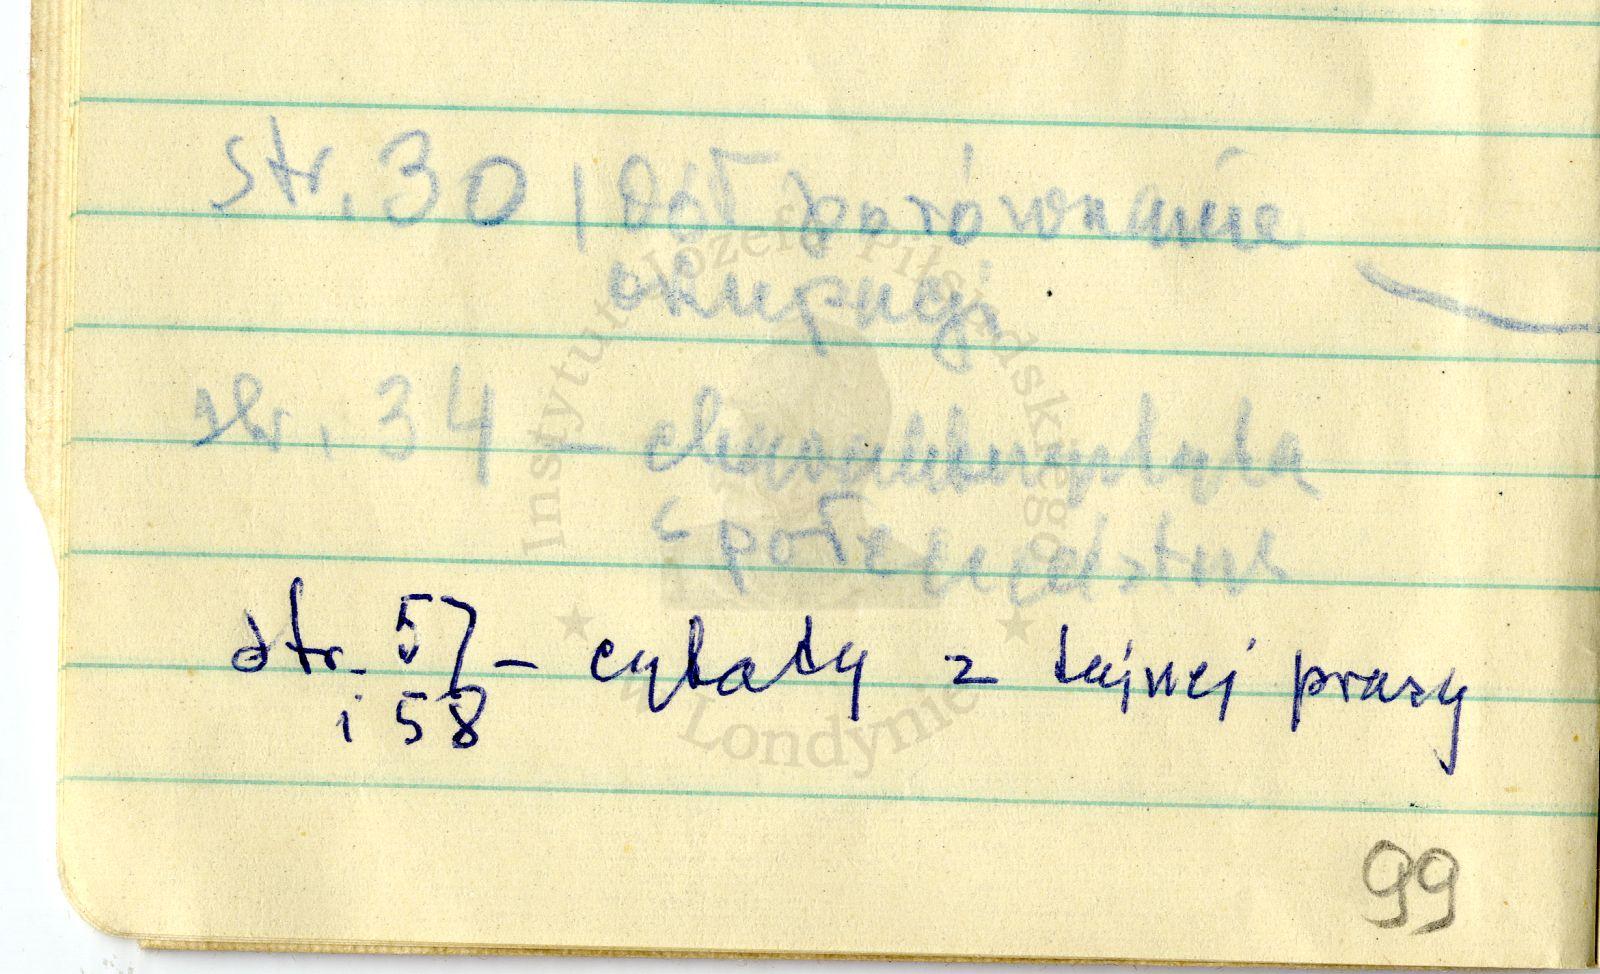 str. 30 / dół porównanie
okupacji
str. 34 – charakterystyka
społeczeństwa
str. 57 – cytaty z tajnej prasy
i 58
99
Instytut Józefa Piłsudskiego
w Londynie